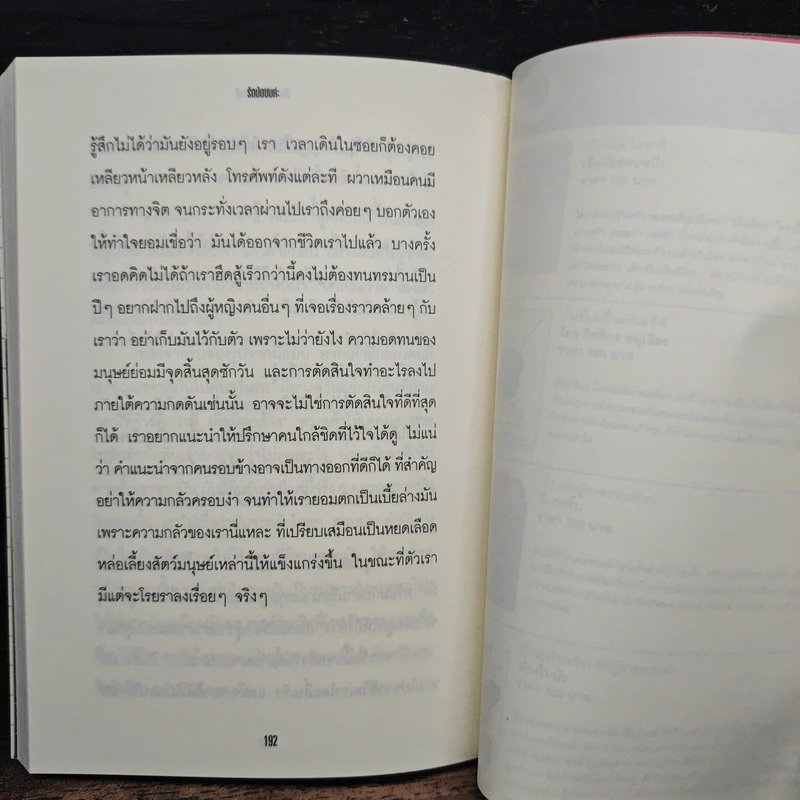 รักป่วยนค่ะ
รู้สึกไม่ได้ว่ามันยังอยู่รอบๆ เรา เวลาเดินในซอยก็ต้องคอย
เหลียวหน้าเหลียวหลัง โทรศัพท์ดังแต่ละที ผวาเหมือนคนมี
อาการทางจิต จนกระทั่งเวลาผ่านไปเราถึงค่อยๆ บอกตัวเอง
ให้ทำใจยอมเชื่อว่า มันได้ออกจากชีวิตเราไปแล้ว บางครั้ง
เราอดคิดไม่ได้ถ้าเราฮึดสู้เร็วกว่านี้คงไม่ต้องทนทรมานเป็น
ปีๆ อยากฝากไปถึงผู้หญิงคนอื่นๆ ที่เจอเรื่องราวคล้ายๆ กับ
เราว่า อย่าเก็บมันไว้กับตัว เพราะไม่ว่ายังไง ความอดทนของ
มนุษย์ย่อมมีจุดสิ้นสุดซักวัน และการตัดสินใจทำอะไรลงไป
ภายใต้ความกดดันเช่นนั้น อาจจะไม่ใช่การตัดสินใจที่ดีที่สุด
ก็ได้ เราอยากแนะนำให้ปรึกษาคนใกล้ชิดที่ไว้ใจได้ดู ไม่แน่
ว่า คำแนะนำจากคนรอบข้างอาจเป็นทางออกที่ดีก็ได้ ที่สำคัญ
อย่าให้ความกลัวครอบงำ จนทำให้เรายอมตกเป็นเบี้ยล่างมัน
เพราะความกลัวของเรานี่แหละ ที่เปรียบเสมือนเป็นหยดเลือด
หล่อเลี้ยงสัตว์มนุษย์เหล่านี้ให้แข็งแกร่งขึ้น ในขณะที่ตัวเรา
มีแต่จะโรยราลงเรื่อยๆ จริงๆ
192